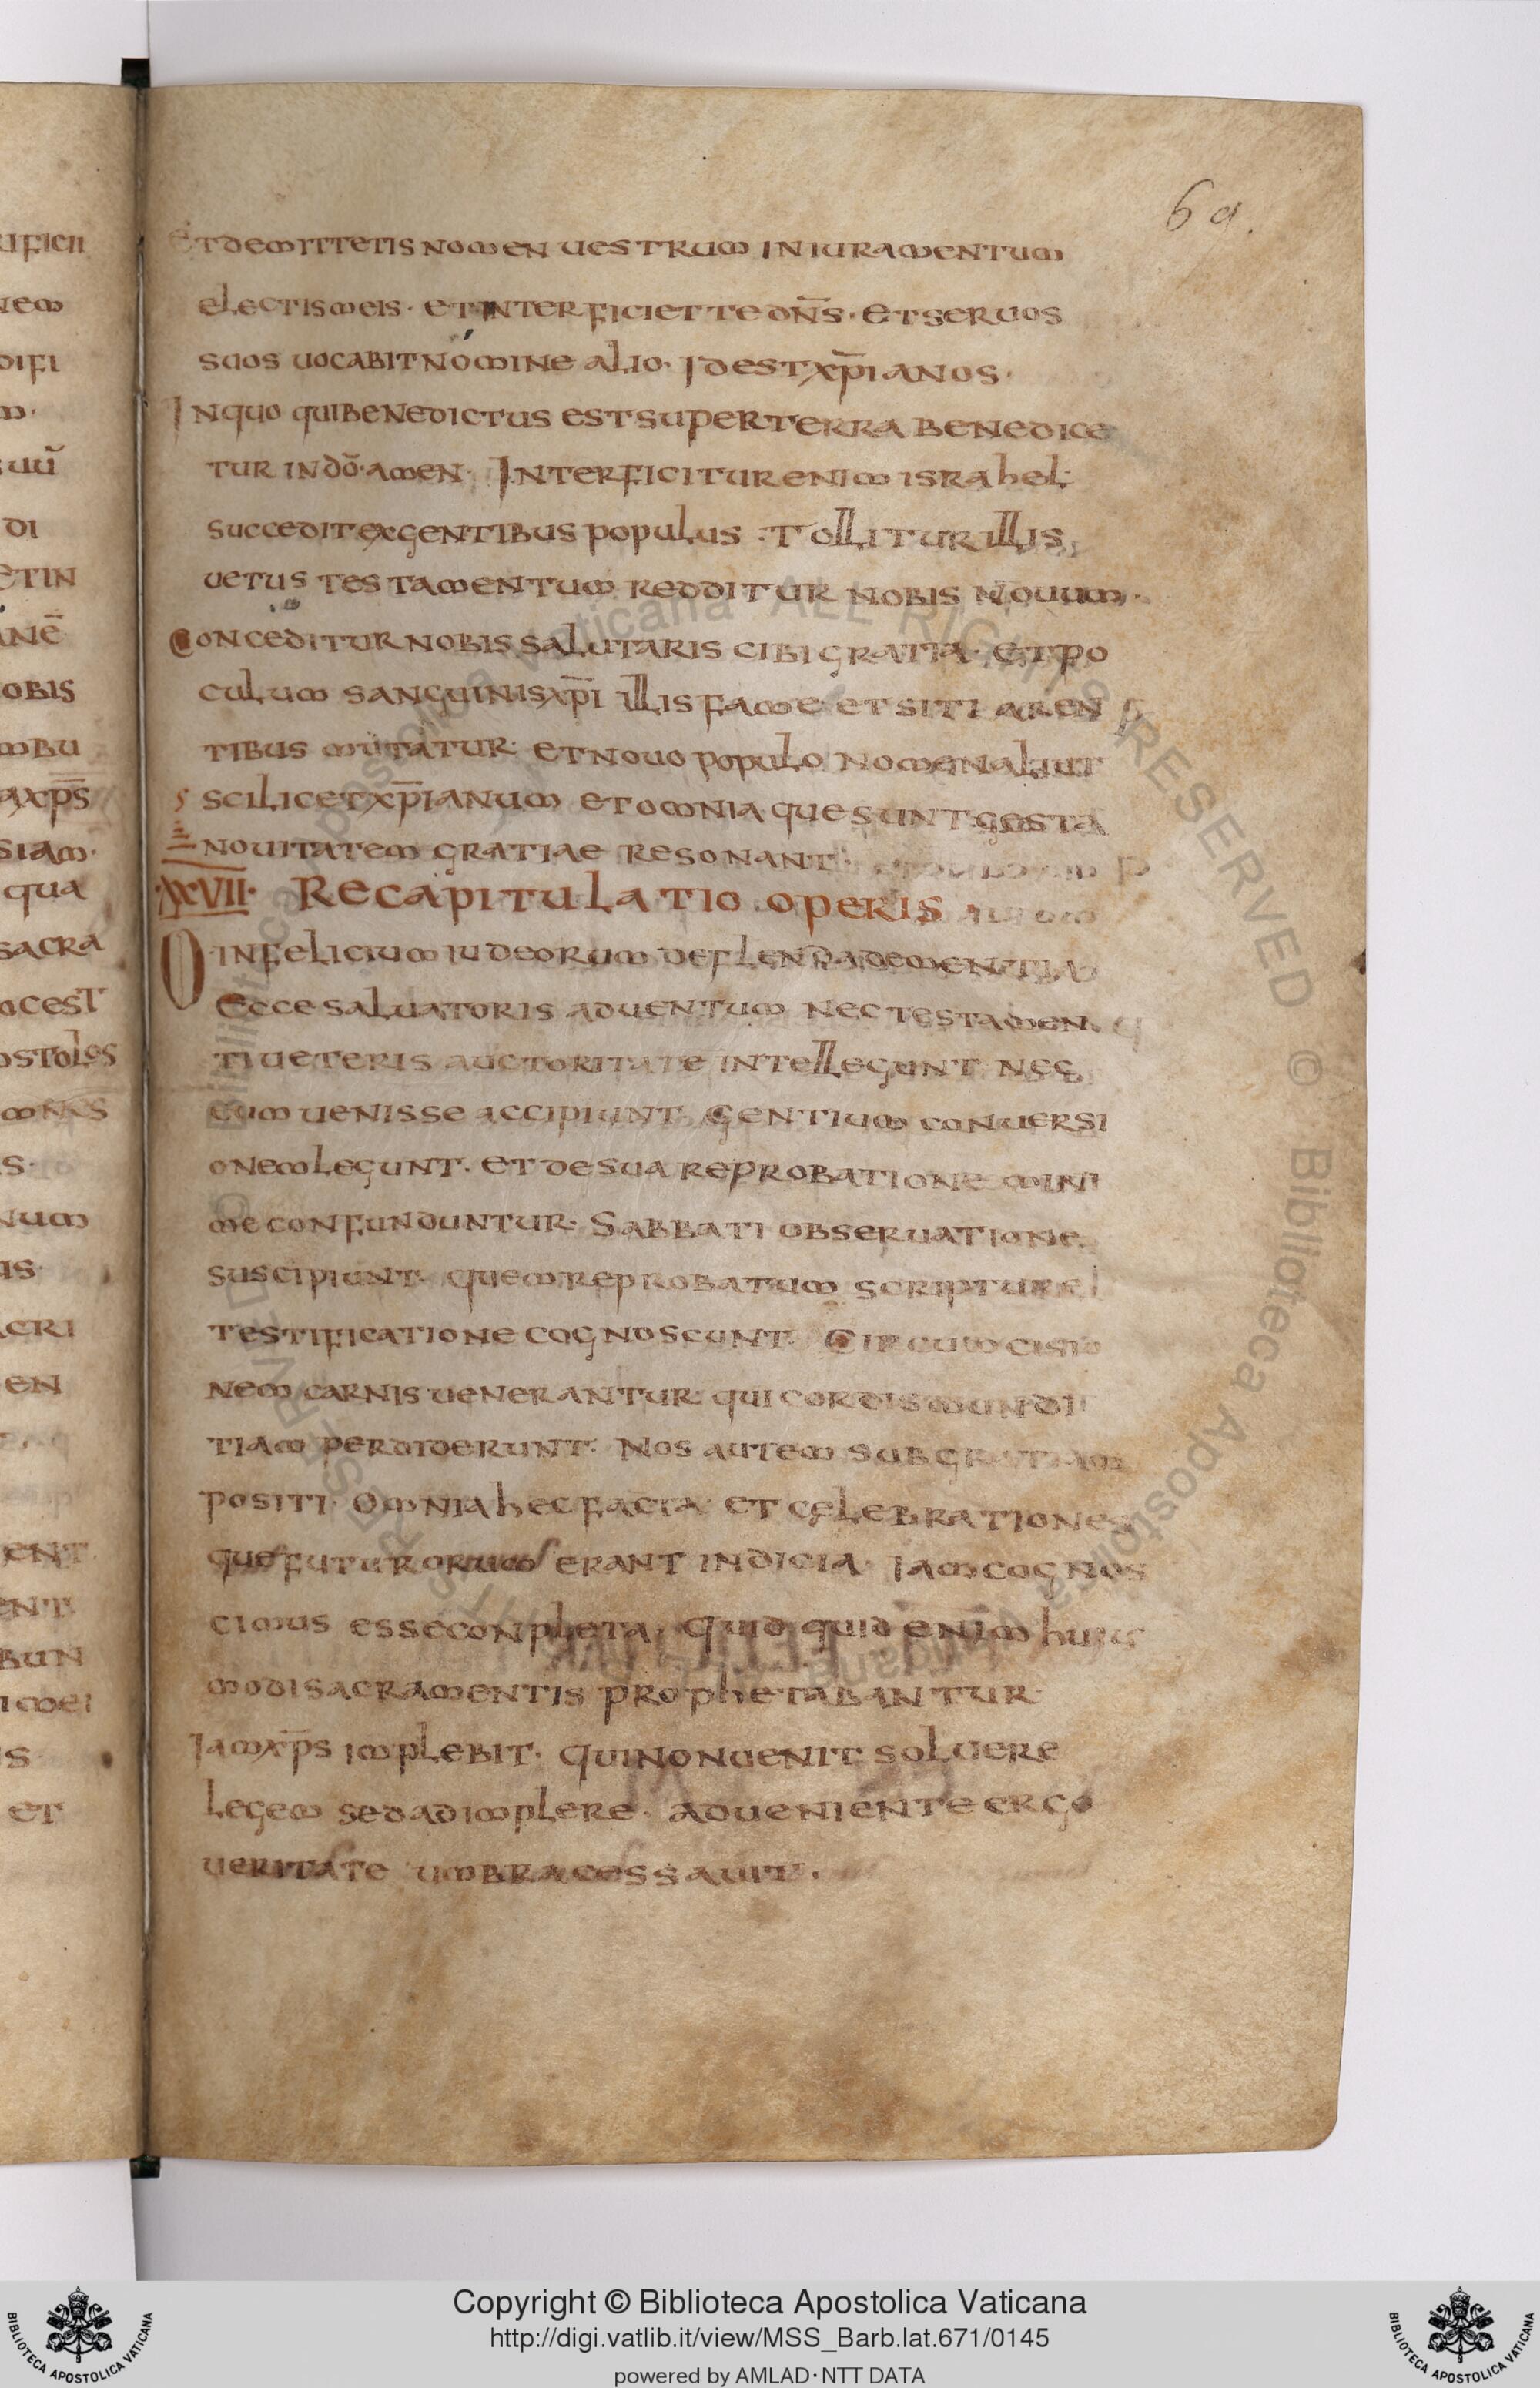 69.
Et demittetis nomen uestrum in iuramentum
electis meis · et interficiet te dn̄s · et seruos
suos uocabit nomine alio · Id est xp̄ianos ·
In quo qui benedictus est super terra benedice
tur in dō · amen · Interficitur enim israhel ·
succedit ex gentibus populus · Tollitur illis
uetus testamentum redditur nobis nouum ·
Conceditur nobis salutaris cibi gratia · et po
culum sanguinis xp̄i illis fame et siti aren
tibus mutatur · et nouo populo nomen aliut
scilicet xp̄ianum et omnia que sunt gesta
nouitatem gratiae resonant ·
·XXVII· Recapitulatio operis
O infelicium iudeorum deflenda dementia
Ecce saluatoris aduentum nec testamen
ti ueteris auctoritate intellegunt nec
cum uenisse accipiunt · Gentium conuersi
onem legunt · et de sua reprobatione mini
me confunduntur · Sabbati obseruatione
suscipiunt · quem reprobatum scripture
testificatione cognoscunt · Circumcisio
nem carnis uenerantur qui cordis mundi
tiam perdiderunt · Nos autem sub gratiam
positi · omnia hec facta · et celebrationes
que futurorum erant indicia · Iam cognos
cimus esse conpleta · Quid quid enim huius
modi sacramentis prophetabantur ·
Iam xp̄s implebit · qui non uenit soluere
legem sed adimplere · adueniente ergo
ueritate umbra cessauit ·
ificii
nem
difi
m ·
uū
di
et in
nē
obis
mbu
a xp̄s
siam ·
qua
sacra
cest
ostolos
s ·
num
is ·
cri
en
ent
ent
bun
i mei
is
et
© Biblioteca Apostolica Vaticana ALL RIGHTS RESERVED
Copyright © Biblioteca Apostolica Vaticana
http://digi.vatlib.it/view/MSS_Barb.lat.671/0145
powered by AMLAD·NTT DATA
BIBLIOTECA APOSTOLICA VATICANA
BIBLIOTECA APOSTOLICA VATICANA